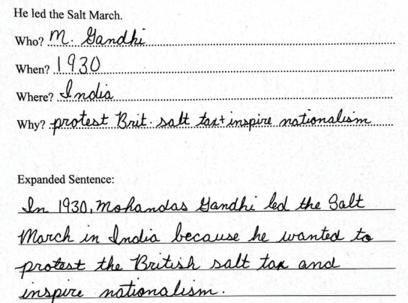 He led the Salt March.
Who? M. Gandhi
When? 1930
Where? India
Why? protest Brit. salt tax + inspire nationalism
Expanded Sentence:
In 1930, Mohandas Gandhi led the Salt
March in India because he wanted to
protest the British salt tax and
inspire nationalism.